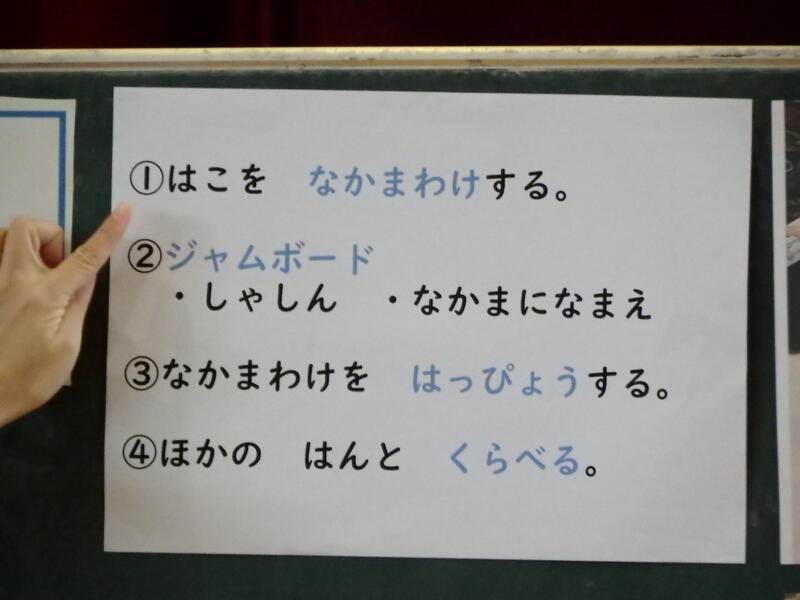 ①はこを　なかまわけする。
②ジャムボード
・しゃしん　・なかまになまえ
③なかまわけを　はっぴょうする。
④ほかの　はんと　くらべる。